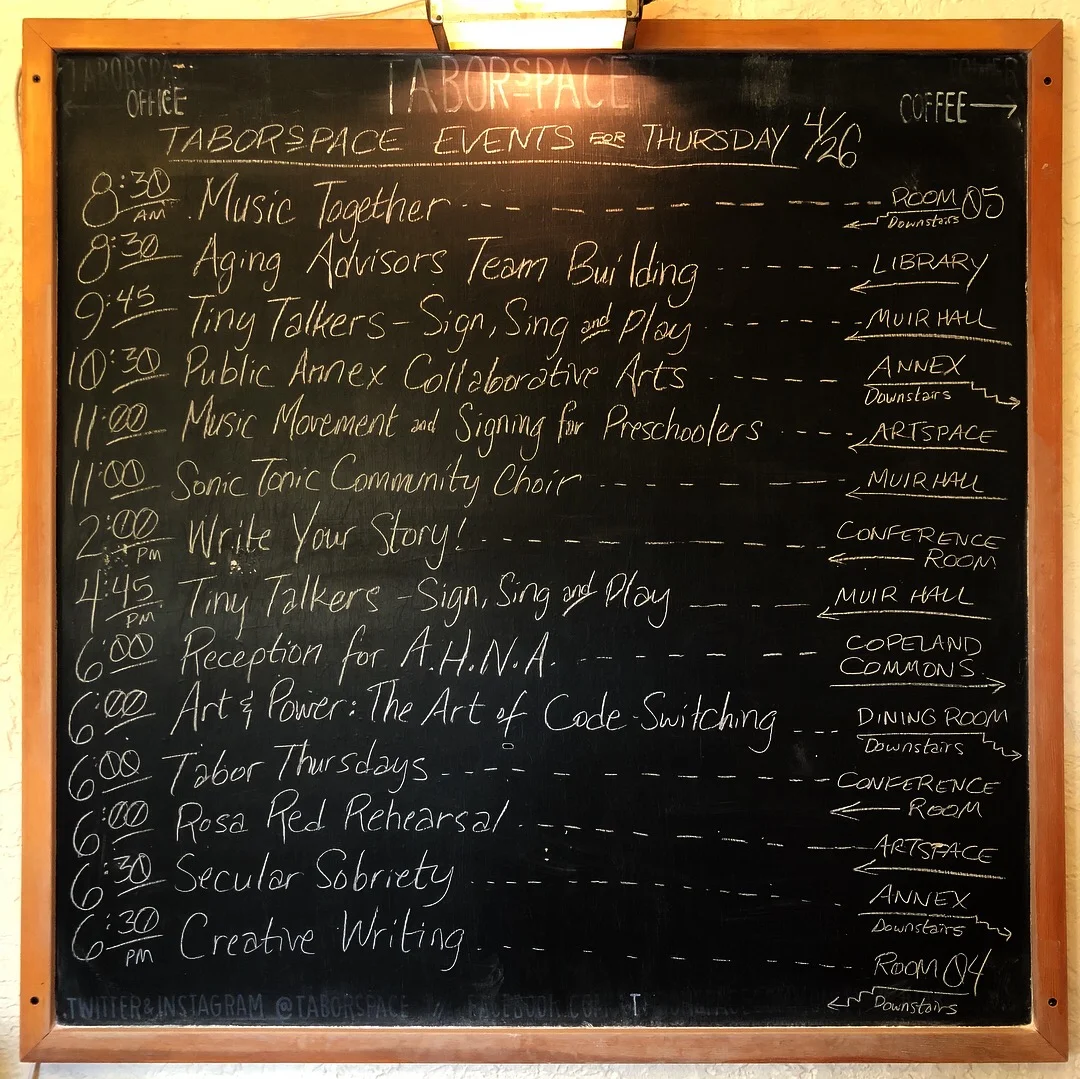 TABORSPACE TABORSPACE TOWER
OFFICE COFFEE →
TABORSPACE EVENTS FOR THURSDAY 4/26
8:30 AM Music Together ROOM 05 Downstairs
8:30 Aging Advisors Team Building LIBRARY
9:45 Tiny Talkers - Sign, Sing and Play MUIR HALL
10:30 Public Annex Collaborative Arts ANNEX Downstairs
11:00 Music Movement and Signing for Preschoolers ARTSPACE
11:00 Sonic Tonic Community Choir MUIR HALL
2:00 PM Write Your Story! CONFERENCE ROOM
4:45 PM Tiny Talkers - Sign, Sing and Play MUIR HALL
6:00 Reception for A.H.N.A. COPELAND COMMONS
6:00 Art & Power: The Art of Code-Switching DINING ROOM Downstairs
6:00 Tabor Thursdays CONFERENCE ROOM
6:00 Rosa Red Rehearsal ARTSPACE
6:30 Secular Sobriety ANNEX Downstairs
6:30 PM Creative Writing ROOM 04 Downstairs
TWITTER & INSTAGRAM @TABORSPACE FACEBOOK.COM